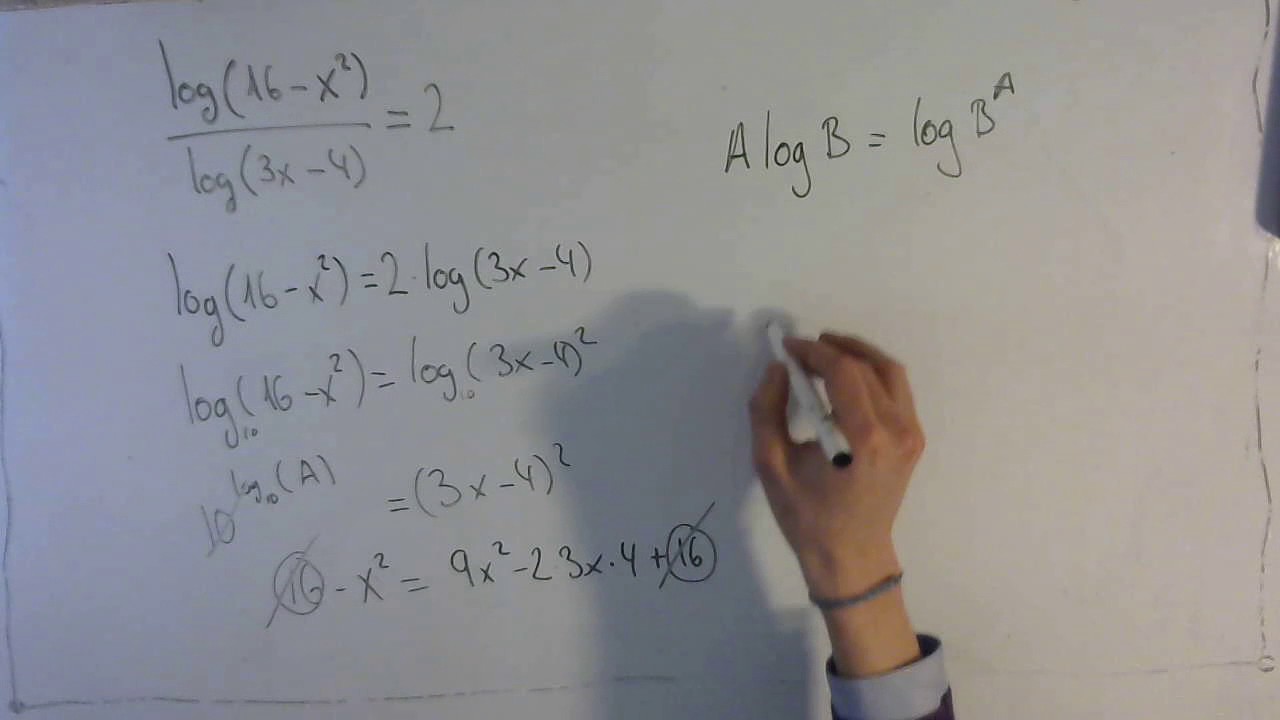 log(16-x²)
log(3x-4)
=2
A log B = log B^A
log(16-x²)=2·log(3x-4)
log₁₀(16-x²)=log₁₀(3x-4)²
10^log₁₀(A) =(3x-4)²
16-x²= 9x²-2 3x·4+16